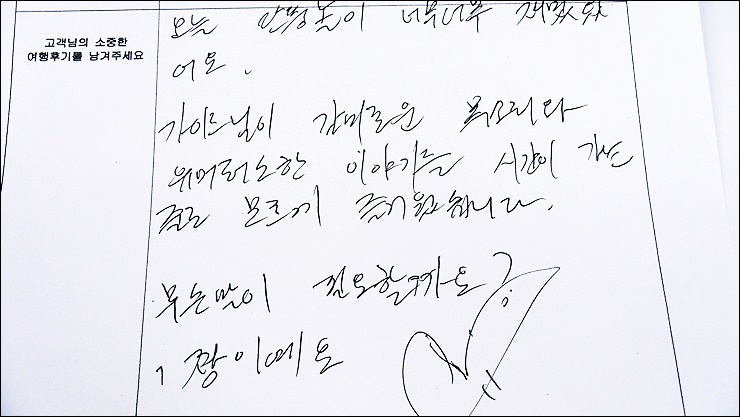 고객님의 소중한
여행후기를 남겨주세요
오늘 너무너무 재밌었
어요.
가이드님의 감미로운 목소리와
유머러스한 이야기를 시간이 가는
줄도 모르게 즐거웠습니다.
무슨말이 필요할까요?
짱이예요